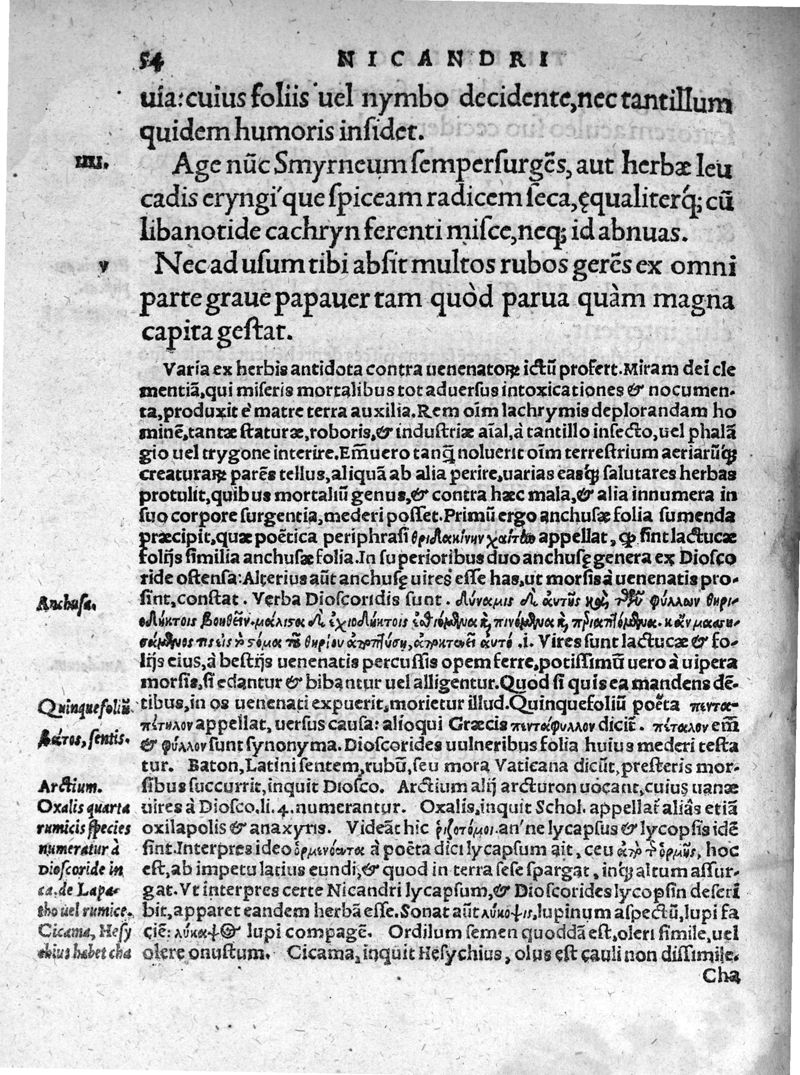 54 NICANDRI
uia: cuius foliis uel nymbo decidente, nec tantillum
quidem humoris insidet.
IIII. Age nūc Smyrneum sempersurgēs, aut herbæ leu
cadis eryngi'que spiceam radicem seca, ęqualiterq́; cū
libanotide cachryn ferenti misce, neq; id abnuas.
v Nec ad usum tibi absit multos rubos gerēs ex omni
parte graue papauer tam quòd parua quàm magna
capita gestat.
Varia ex herbis antidota contra uenenatoꝝ ictū profert. Miram dei cle
mentiā, qui miseris mortalibus tot aduersus intoxicationes & nocumen-
ta, produxit è matre terra auxilia. Rem oīm lachrymis deplorandam ho
minē, tantæ staturæ, roboris, & industriæ aīal, à tantillo insecto, uel phalā
gio uel trygone interire. Emuero tanq̄ noluerit oīm terrestrium aeriarūq́;
creaturaꝝ parēs tellus, aliquā ab alia perire, uarias easq́; salutares herbas
protulit, quibus mortaliū genus, & contra hæc mala, & alia innumera in
suo corpore surgentia, mederi posset. Primū ergo anchusæ folia sumenda
præcipit, quæ poëtica periphrasi θριδακίνην χαίτην appellat, ꝙ sint lactucæ
folijs similia anchusæ folia. In superioribus duo anchusę genera ex Diosco
ride ostensa: Alterius aūt anchusę uires esse has, ut morsis à uenenatis pro-
Anchusa. sint, constat. Verba Dioscoridis sunt. δύναμις δὲ αὐτῆς καὶ τῶν φύλλων θηρι-
οδήκτοις βοηθεῖν. μάλιστα δὲ ἐχιοδήκτοις ἐσθιόμενα ἢ, πινόμενα ἢ, περιαπτόμενα. κἂν
.i. Vires sunt lactucæ & fo-
lijs eius, à bestijs uenenatis percussis opem ferre, potissimū uero à uipera
morsis, si edantur & bibantur uel alligentur. Quod si quis ea mandens dē-
Quinquefoliū. tibus, in os uenenati expuerit, morietur illud. Quinquefoliū poëta πεντα-
πέτηλον appellat, uersus causa: alioqui Græcis πεντάφυλλον dicit̄. πέταλον em̄
Βάτος, sentis. & φύλλον sunt synonyma. Dioscorides uulneribus folia huius mederi testa
tur. Baton, Latini sentem, rubū, seu mora Vaticana dicūt, presteris mor-
Arctium. sibus succurrit, inquit Diosco. Arctium alij arcturon uocant, cuius uanæ
Oxalis quarta uires à Diosco, li. 4. numerantur. Oxalis, inquit Schol. appellat̄ aliâs etiā
rumicis species oxilapolis & anaxyris. Videāt hic ῥιζοτόμοι. an'ne lycapsus & lycopsis idē
numeratur à sint. Interpres ideo ὁρμενόεντα à poëta dici lycapsum ait, ceu ἀπὸ τ ὁρμῆς, hoc
Dioscoride in est, ab impetu latius eundi, & quod in terra sese spargat, inq́; altum assur-
ca. de Lapa- gat. Vt interpres certe Nicandri lycapsum, & Dioscorides lycopsin descri
tho uel rumice. bit, apparet eandem herbā esse. Sonat aūt λύκοψις, lupinum aspectū, lupi fa
Cicama, Hesy ciē: λύκαψος lupi compagē. Ordilum semen quoddā est, oleri simile, uel
chius habet cha olere onustum. Cicama, inquit Hesychius, olus est cauli non dissimile.
Cha